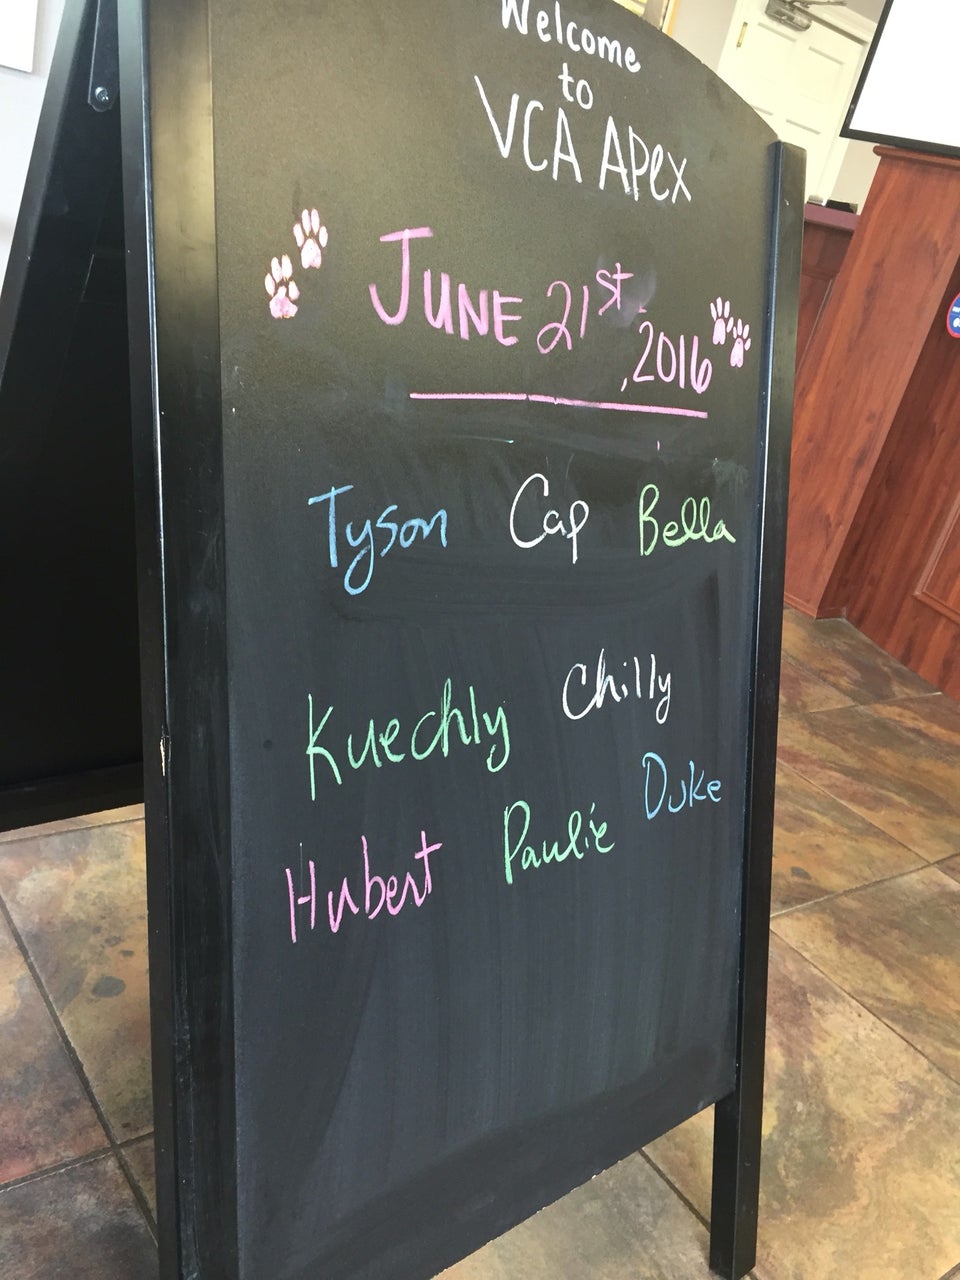 Welcome
to
VCA APex
JUNE 21st, 2016
Tyson Cap Bella
Kuechly Chilly
Hubert Paulie Duke